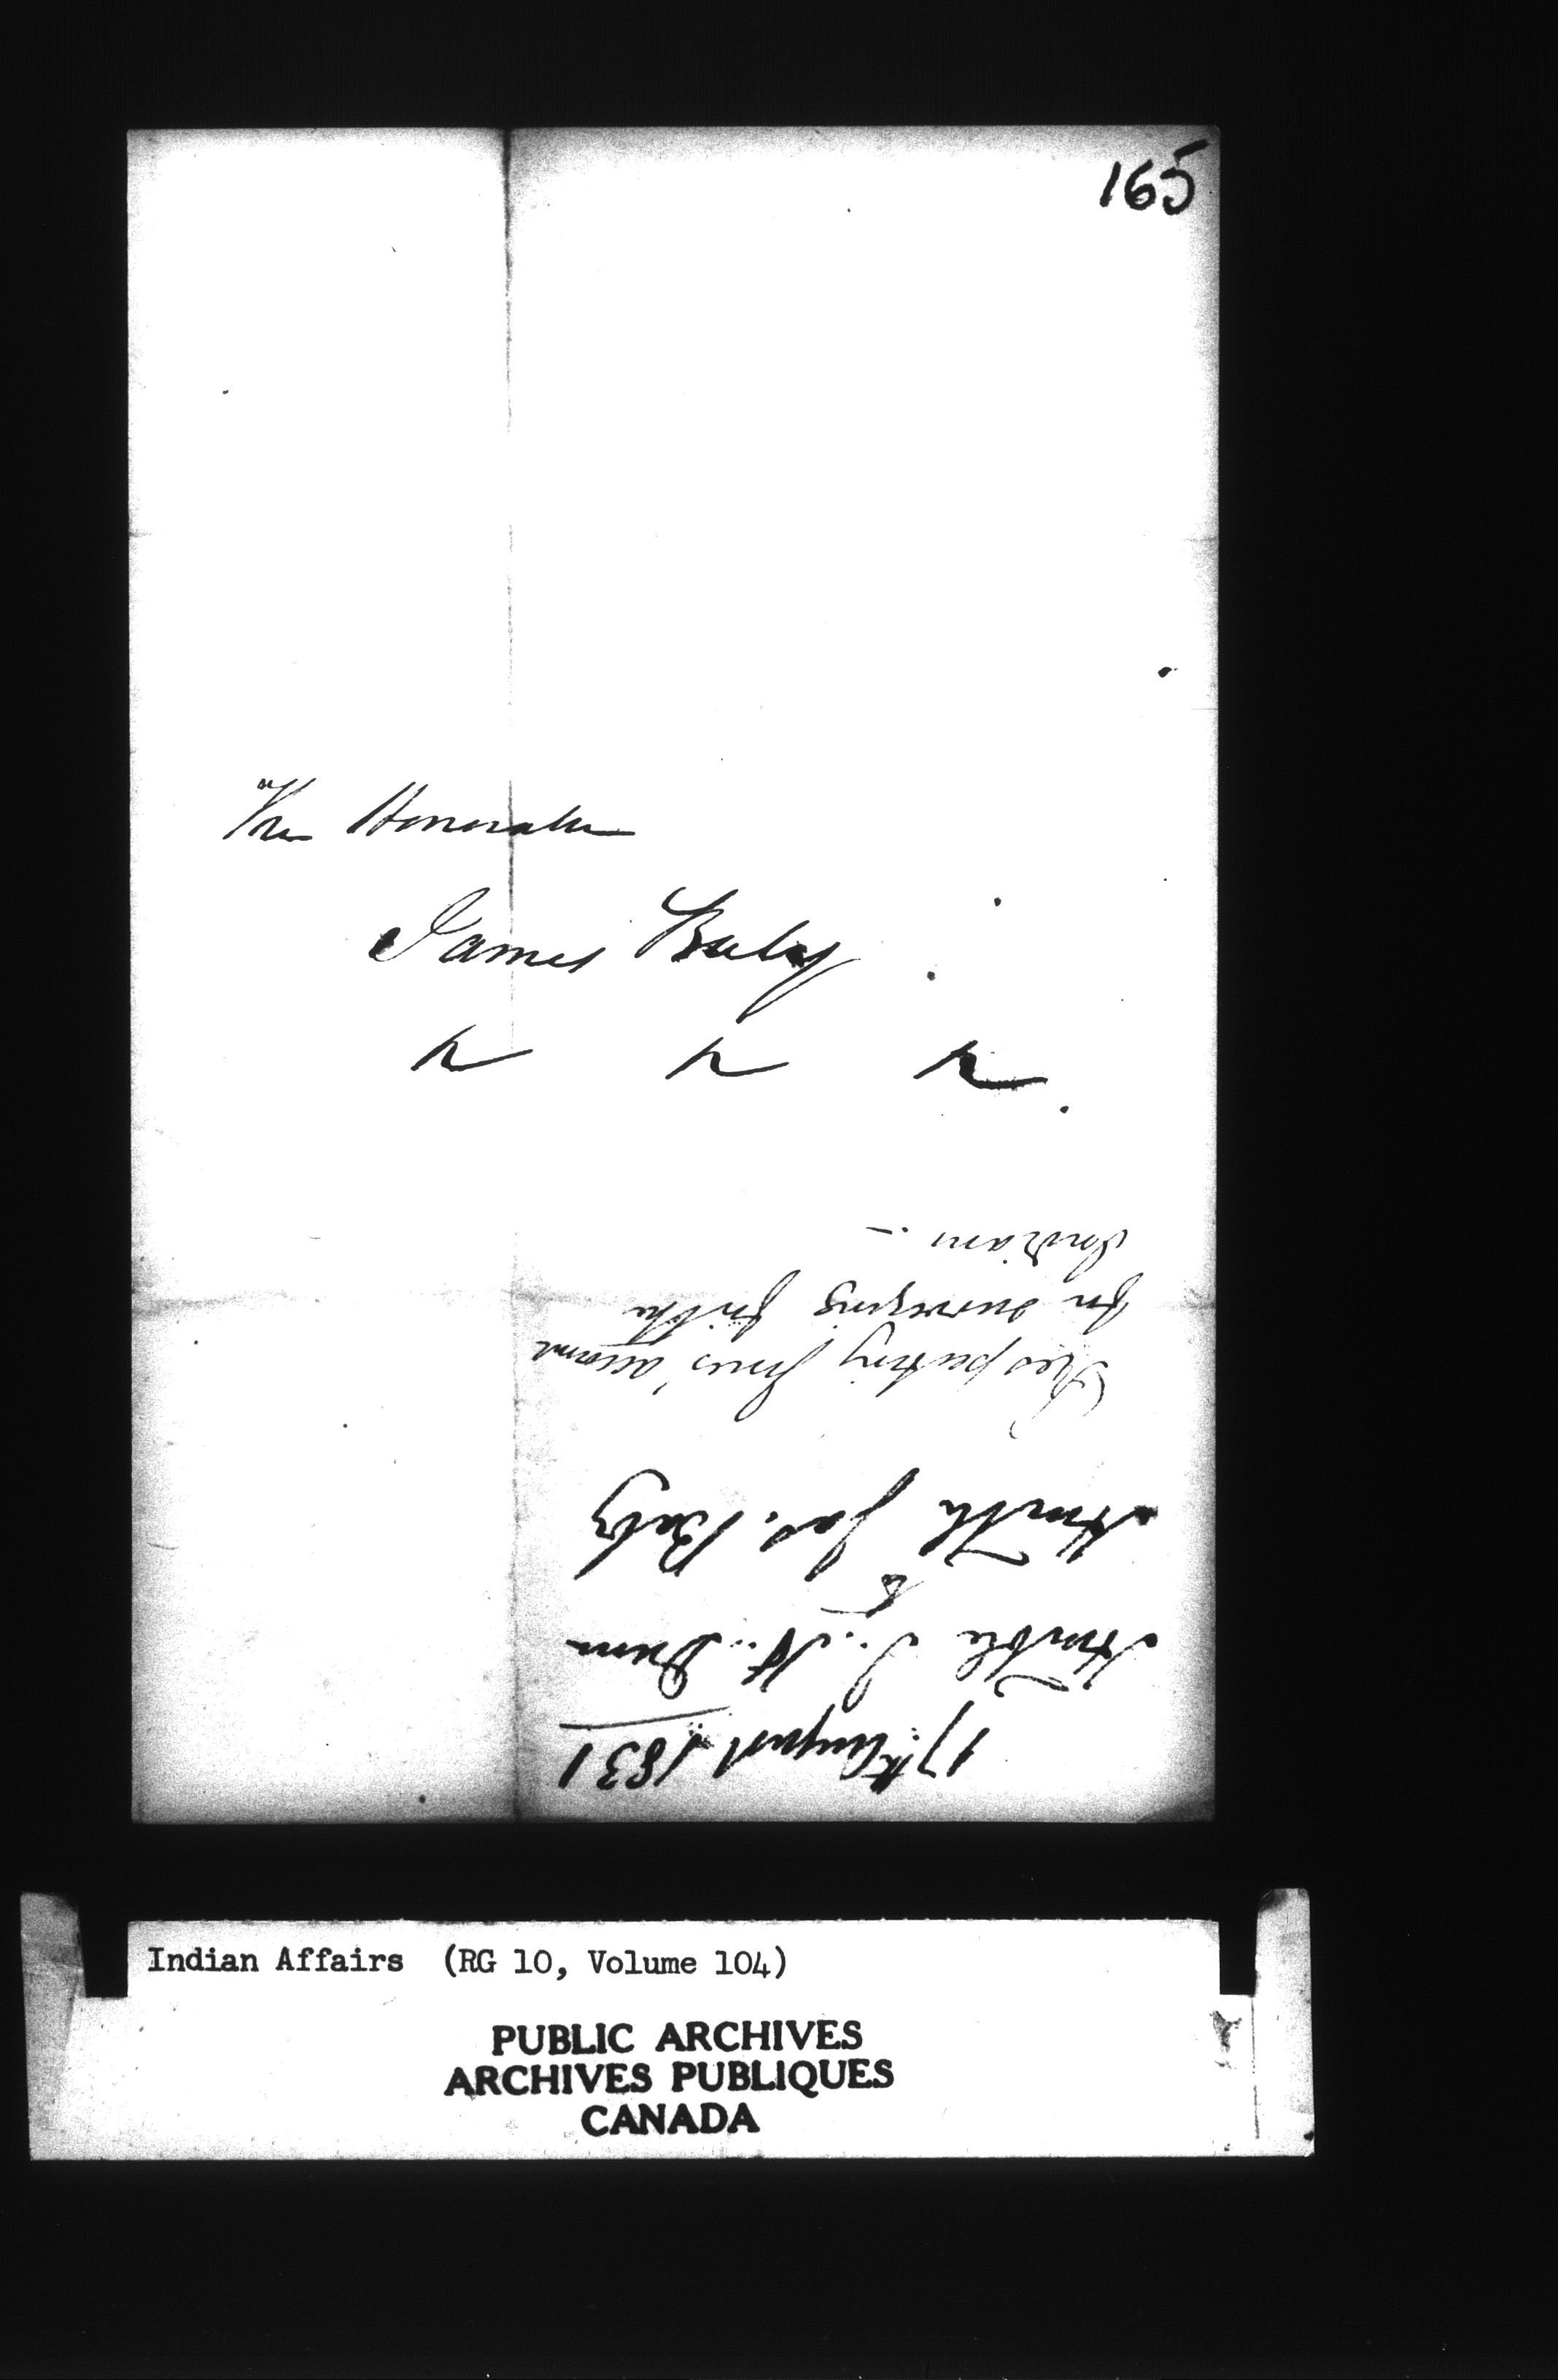 165
The Honorable
James Baby
&c &c &c.
17th August 1831
Honble J. H. Dunn
to
Honble Jas. Baby
Respecting account
for surveying for the
Indians. –
Indian Affairs (RG 10, Volume 104)
PUBLIC ARCHIVES
ARCHIVES PUBLIQUES
CANADA